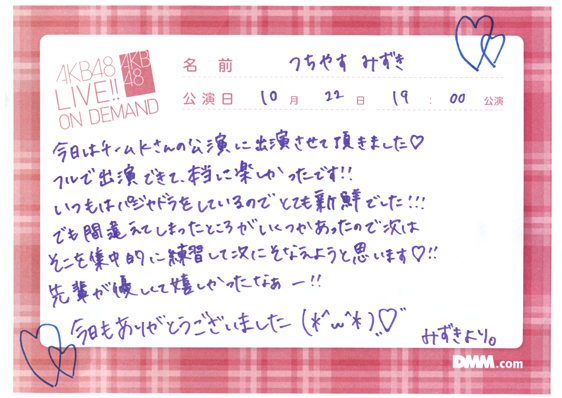 AKB48
LIVE!!
ON DEMAND
AKB
48
名前 つちやす みずき
公演日 10月 22日 19:00 公演
今日はチームKさんの公演に出演させて頂きました♡
フルで出演できて、本当に楽しかったです!!
いつもはパジャドラをしているのでとても新鮮でした!!!
でも間違えてしまったところがいくつかあったので次は
そこを集中的に練習して次にそなえようと思います♡!!
先輩が優しくて嬉しかったなぁー!!
今日もありがとうございました(*^ω^*)♡
みずきより。
DMM.com